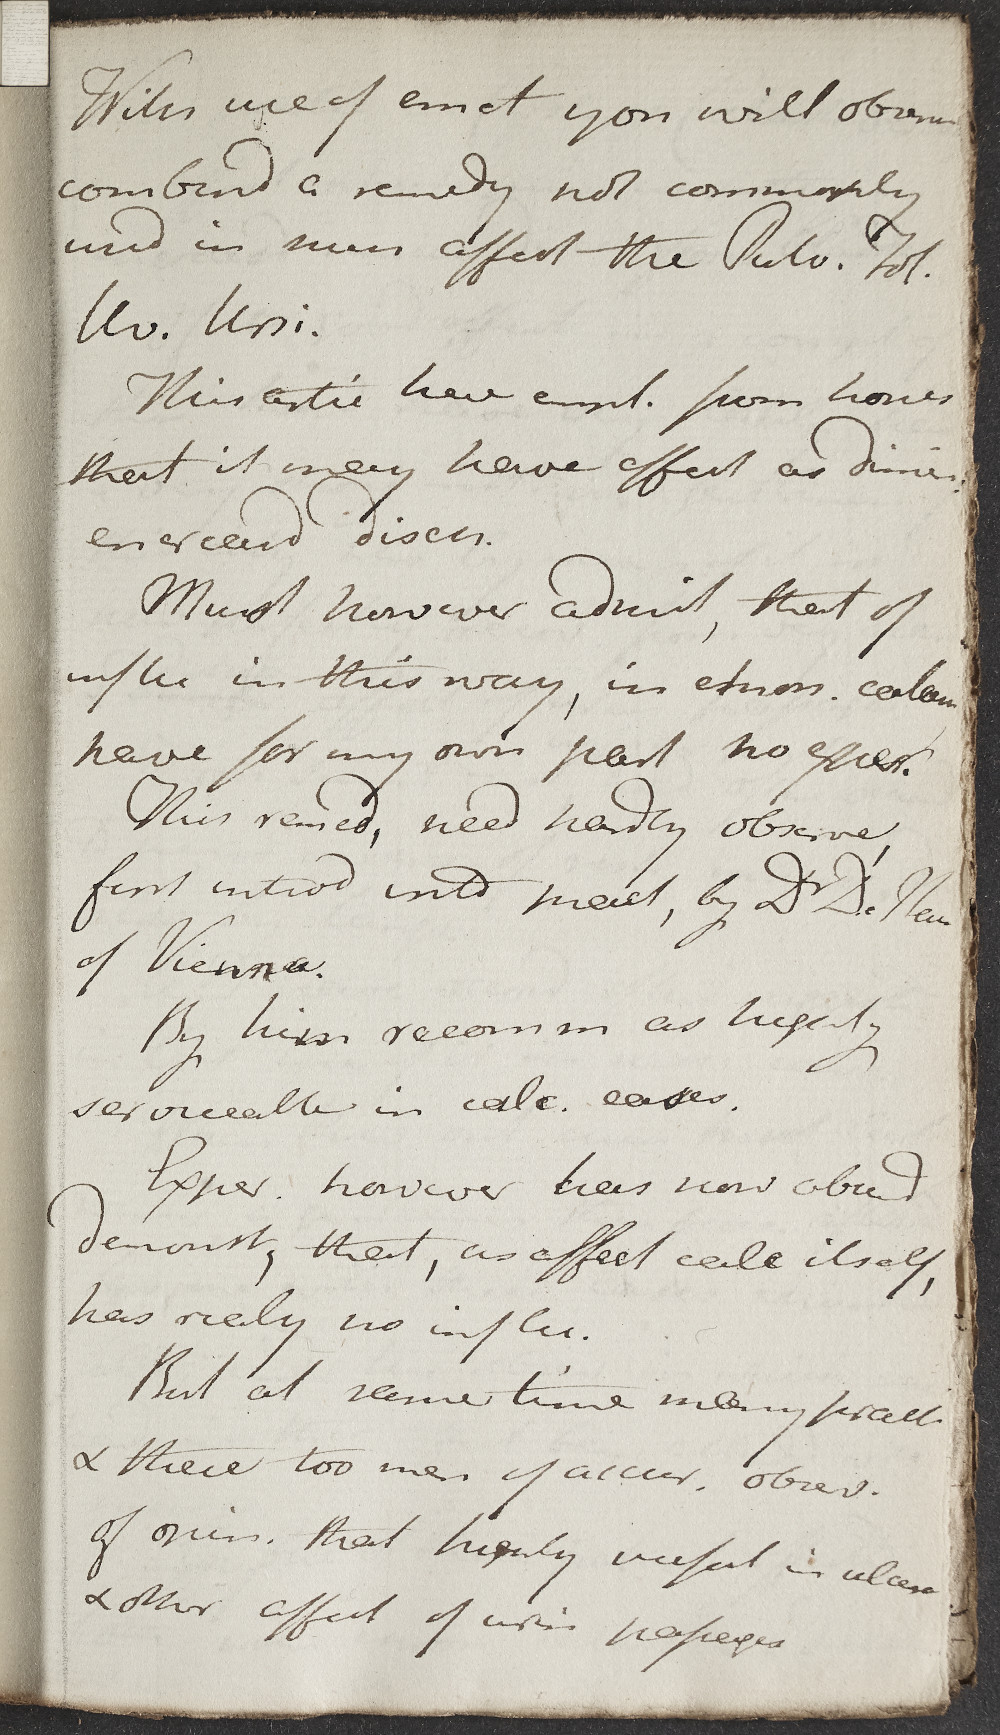 With use of emet you will observ
combind a remedy not commonly
used in such affect the Pulv. Fol.
Uv. Ursi.
This artic have empl. from hopes
that it may have effect as dimin.
discn.
Must however admit, that of
influ in this way, in chron. calcu
have for my own part no exper.
This remed, need hardly observe,
first introd into pract, by Dr D. Haen
of Vienna.
By him recomm as highly
serviceable in calc. cases.
Exper. however has now abund
demonst, that, as affect calc itself,
has realy no influ.
But at same time many pract
& these too men of accur. observ.
of opin. that highly useful in ulcera
& other affect of urin passages